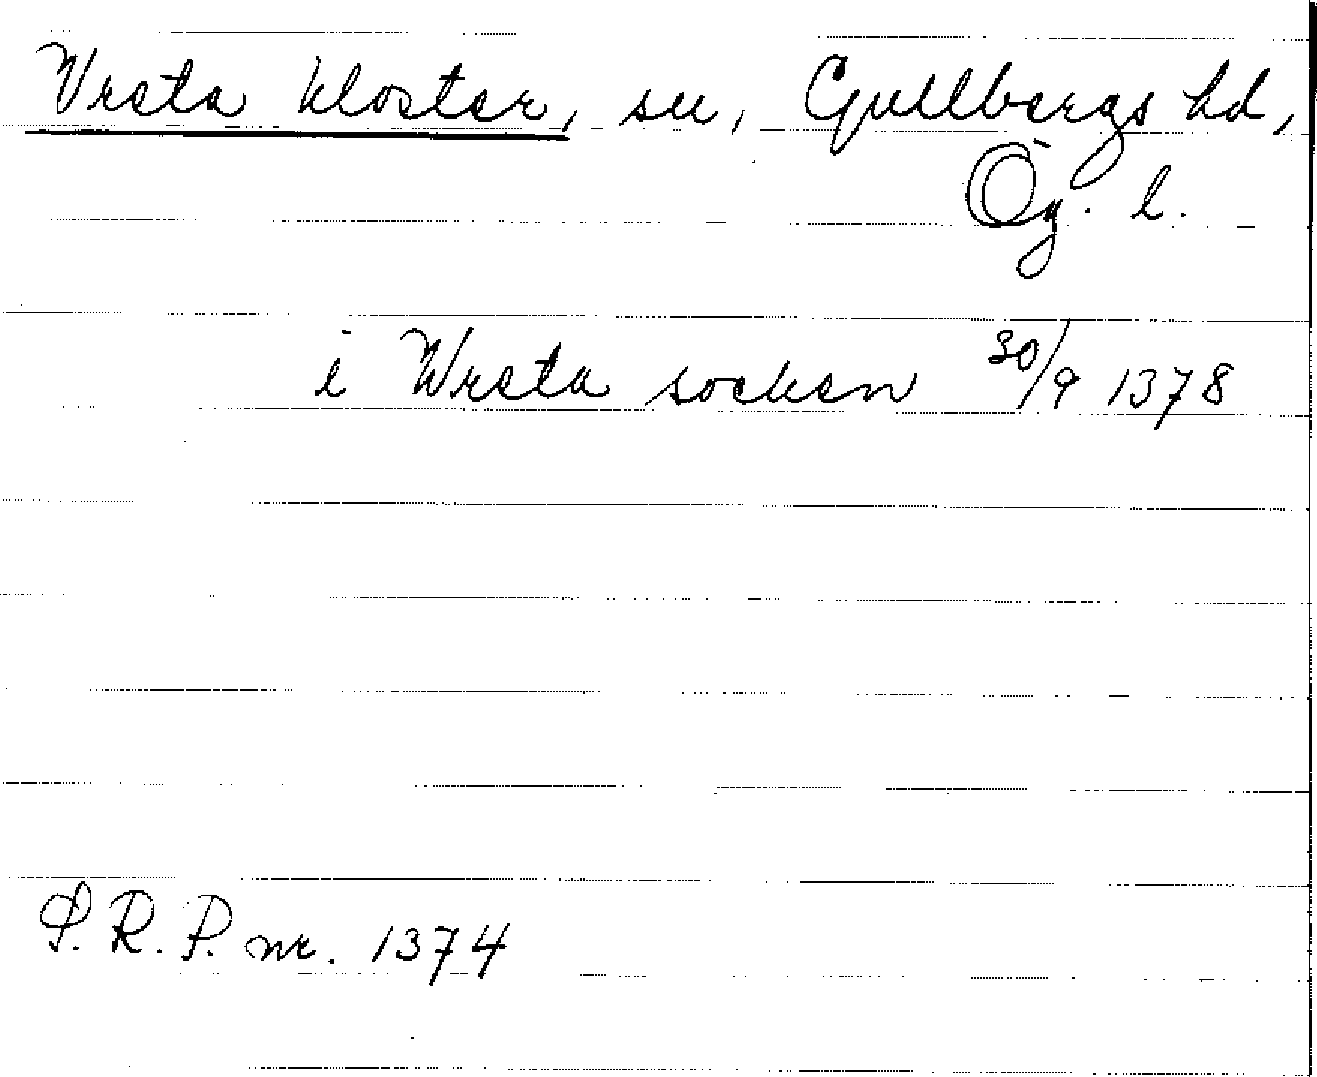 Vreta kloster, sn, Gullbergs hd,
Ög. l.
i Wreta socken 30/9 1378
S. R. P. nr. 1374